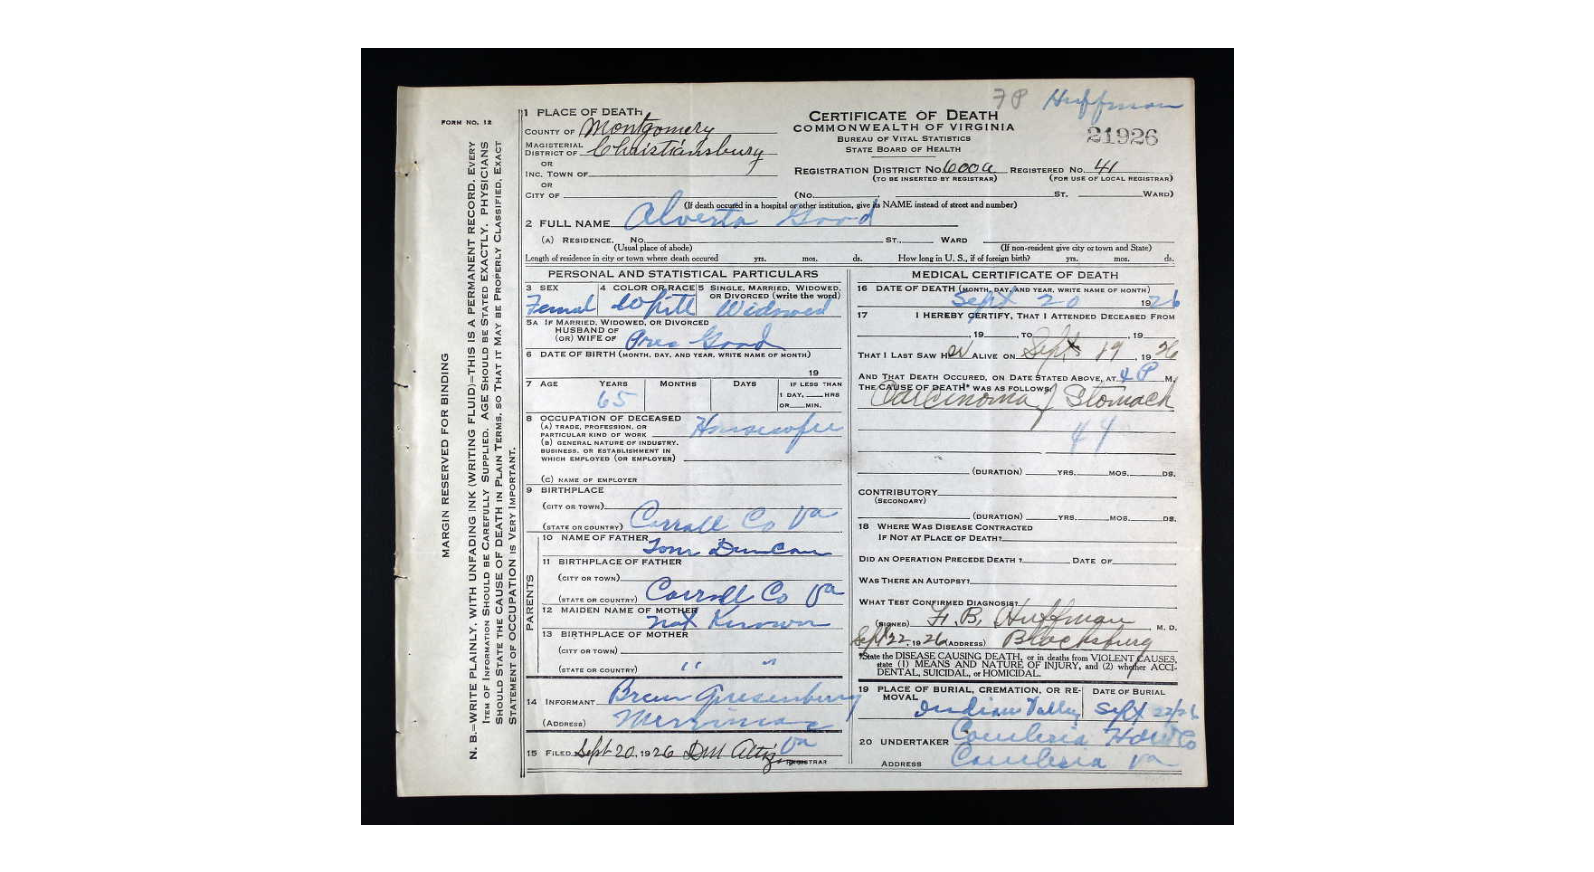 7P Huffman
FORM NO. 12
MARGIN RESERVED FOR BINDING
N. B.—WRITE PLAINLY, WITH UNFADING INK (WRITING FLUID)—THIS IS A PERMANENT RECORD. EVERY
ITEM OF INFORMATION SHOULD BE CAREFULLY SUPPLIED. AGE SHOULD BE STATED EXACTLY. PHYSICIANS
SHOULD STATE THE CAUSE OF DEATH IN PLAIN TERMS, SO THAT IT MAY BE PROPERLY CLASSIFIED. EXACT
STATEMENT OF OCCUPATION IS VERY IMPORTANT.
1 PLACE OF DEATH
COUNTY OF Montgomery
MAGISTERIAL
DISTRICT OF Christiansburg
OR
INC. TOWN OF
OR
CITY OF
CERTIFICATE OF DEATH
COMMONWEALTH OF VIRGINIA
BUREAU OF VITAL STATISTICS
STATE BOARD OF HEALTH
21926
REGISTRATION DISTRICT NO. 600a REGISTERED NO. 41
(TO BE INSERTED BY REGISTRAR) (FOR USE OF LOCAL REGISTRAR)
(NO. ST. WARD)
(If death occured in a hospital or other institution, give its NAME instead of street and number)
2 FULL NAME Alverta Good
(A) RESIDENCE. NO. ST., WARD
(Usual place of abode) (If non-resident give city or town and State)
Length of residence in city or town where death occured yrs. mos. ds. How long in U. S., if of foreign birth? yrs. mos. ds.
PERSONAL AND STATISTICAL PARTICULARS
3 SEX 4 COLOR OR RACE 5 SINGLE, MARRIED, WIDOWED, OR DIVORCED (write the word)
Femal White Widowed
5A IF MARRIED, WIDOWED, OR DIVORCED
HUSBAND OF
(OR) WIFE OF Good
6 DATE OF BIRTH (MONTH, DAY, AND YEAR, WRITE NAME OF MONTH)
19
7 AGE YEARS MONTHS DAYS IF LESS THAN
65 1 DAY, HRS
OR MIN.
8 OCCUPATION OF DECEASED
(A) TRADE, PROFESSION, OR
PARTICULAR KIND OF WORK Housewife
(B) GENERAL NATURE OF INDUSTRY,
BUSINESS, OR ESTABLISHMENT IN
WHICH EMPLOYED (OR EMPLOYER)
(C) NAME OF EMPLOYER
9 BIRTHPLACE
(CITY OR TOWN)
(STATE OR COUNTRY) Carroll Co Va
PARENTS
10 NAME OF FATHER Tom Duncan
11 BIRTHPLACE OF FATHER
(CITY OR TOWN)
(STATE OR COUNTRY) Carroll Co Va
12 MAIDEN NAME OF MOTHER
Not Known
13 BIRTHPLACE OF MOTHER
(CITY OR TOWN)
(STATE OR COUNTRY) " "
14 INFORMANT
(ADDRESS) Merrimac
Va
15 FILED Sept 20, 1926 DM Altizer REGISTRAR
MEDICAL CERTIFICATE OF DEATH
16 DATE OF DEATH (MONTH, DAY, AND YEAR, WRITE NAME OF MONTH)
Sept 20 1926
17 I HEREBY CERTIFY, THAT I ATTENDED DECEASED FROM
, 19 , TO , 19
THAT I LAST SAW Her ALIVE ON Sept 19, 1926
AND THAT DEATH OCCURED, ON DATE STATED ABOVE, AT 4 P M.
THE CAUSE OF DEATH* WAS AS FOLLOWS
Carcinoma of Stomach
44
(DURATION) YRS. MOS. DS.
CONTRIBUTORY
(SECONDARY)
(DURATION) YRS. MOS. DS.
18 WHERE WAS DISEASE CONTRACTED
IF NOT AT PLACE OF DEATH?
DID AN OPERATION PRECEDE DEATH? DATE OF
WAS THERE AN AUTOPSY?
WHAT TEST CONFIRMED DIAGNOSIS?
(SIGNED) F. B. Huffman M. D.
Sept 22, 1926 (ADDRESS) Blacksburg
*State the DISEASE CAUSING DEATH, or in deaths from VIOLENT CAUSES,
state (1) MEANS AND NATURE OF INJURY, and (2) whether ACCI-
DENTAL, SUICIDAL, or HOMICIDAL.
19 PLACE OF BURIAL, CREMATION, OR RE-
MOVAL DATE OF BURIAL
Indian Valley Sept 22/26
20 UNDERTAKER Cambria Co
ADDRESS Cambria Va